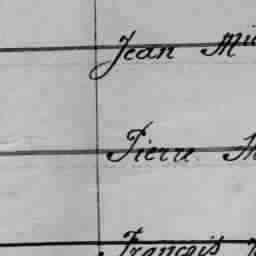 Jean
Pierre
François